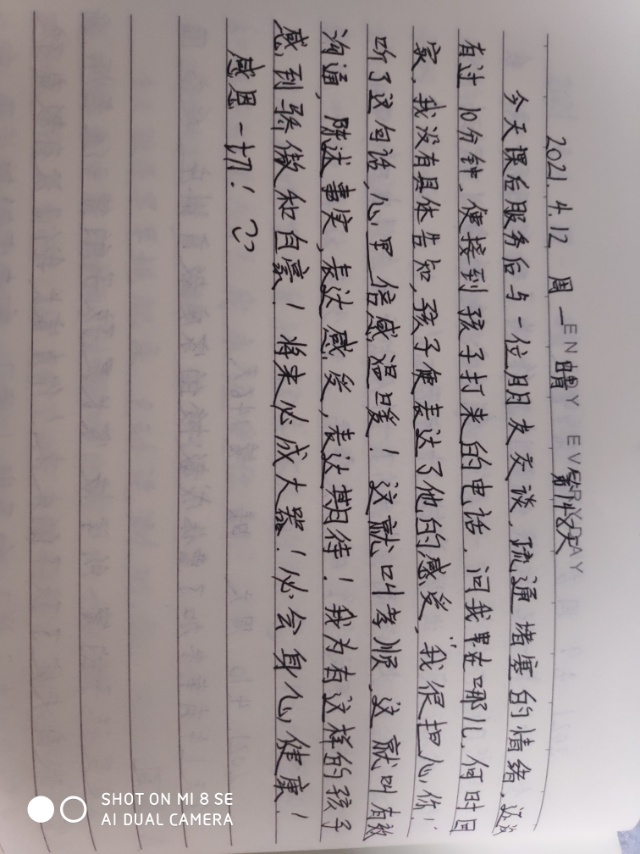 ENJOY EVERYDAY
2021.4.12 周一 晴 第148天
今天课后服务后与一位朋友交谈,疏通堵塞的情绪。还没
有过10分钟,便接到孩子打来的电话,问我在哪儿,何时回
家,我没有具体告知,孩子便表达了他的感受,“我很担心你!”
听了这句话,心里倍感温暖!这就叫孝顺,这就叫有效
沟通,陈述事实,表达感受,表达期待!我为有这样的孩子
感到骄傲和自豪!将来必成大器!必会身心健康!
感恩一切!
SHOT ON MI 8 SE
AI DUAL CAMERA